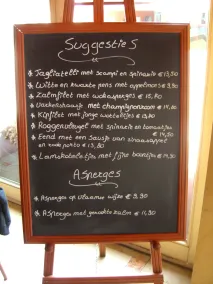 Suggesties
* Tagliatelli met scampi en spinazie € 13,50
* Witte en zwarte pens met appelmoes € 9,90
* Zalmfilet met wokasperges € 15,80
* Varkenshaasje met champignonroom €
* Kipfilet met jonge worteltjes €
* Roggevleugel met spinazie en tomaatjes
€ 14,50
* Eend met een sausje van sinaasappel
en rode porto € 13,80
* Lamskoteletjes met fijne boontjes € 14,50
Asperges
* Asperges op vlaamse wijze € 9,90
* Asperges met gerookte zalm €